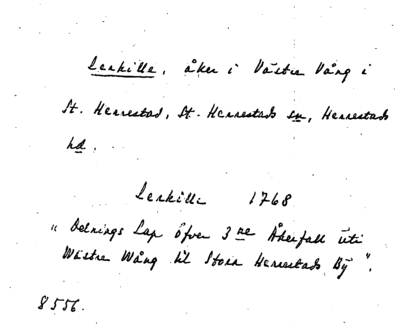 Lerkille, åker i Västra Vång i
St. Herrestad, St. Herrestads sn, Herrestads
hd.
Lerkille 1768
"Delnings Lap öfver 3ne Åkerfall uti
Wästra Wång til Stora Herrestads By".
8556.